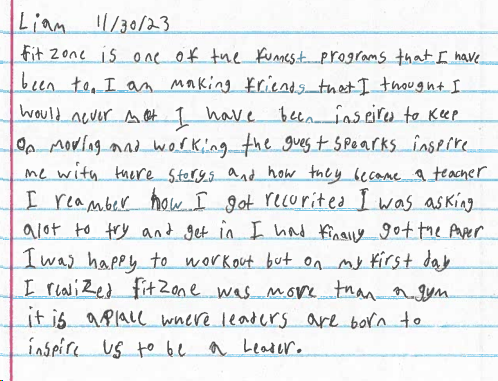 Liam 11/30/23
Fit Zone is one of the funnest programs that I have
been to, I am making friends that I thought I
would never met I have been inspired to keep
on moving and working the guest spearks inspire
me with there storys and how they became a teacher
I reamber how I got recorited I was asking
alot to try and get in I had finally got the paper
I was happy to workout but on my first day
I realized FitZone was more than a gym
it is a place where leaders are born to
inspire us to be a Leader.